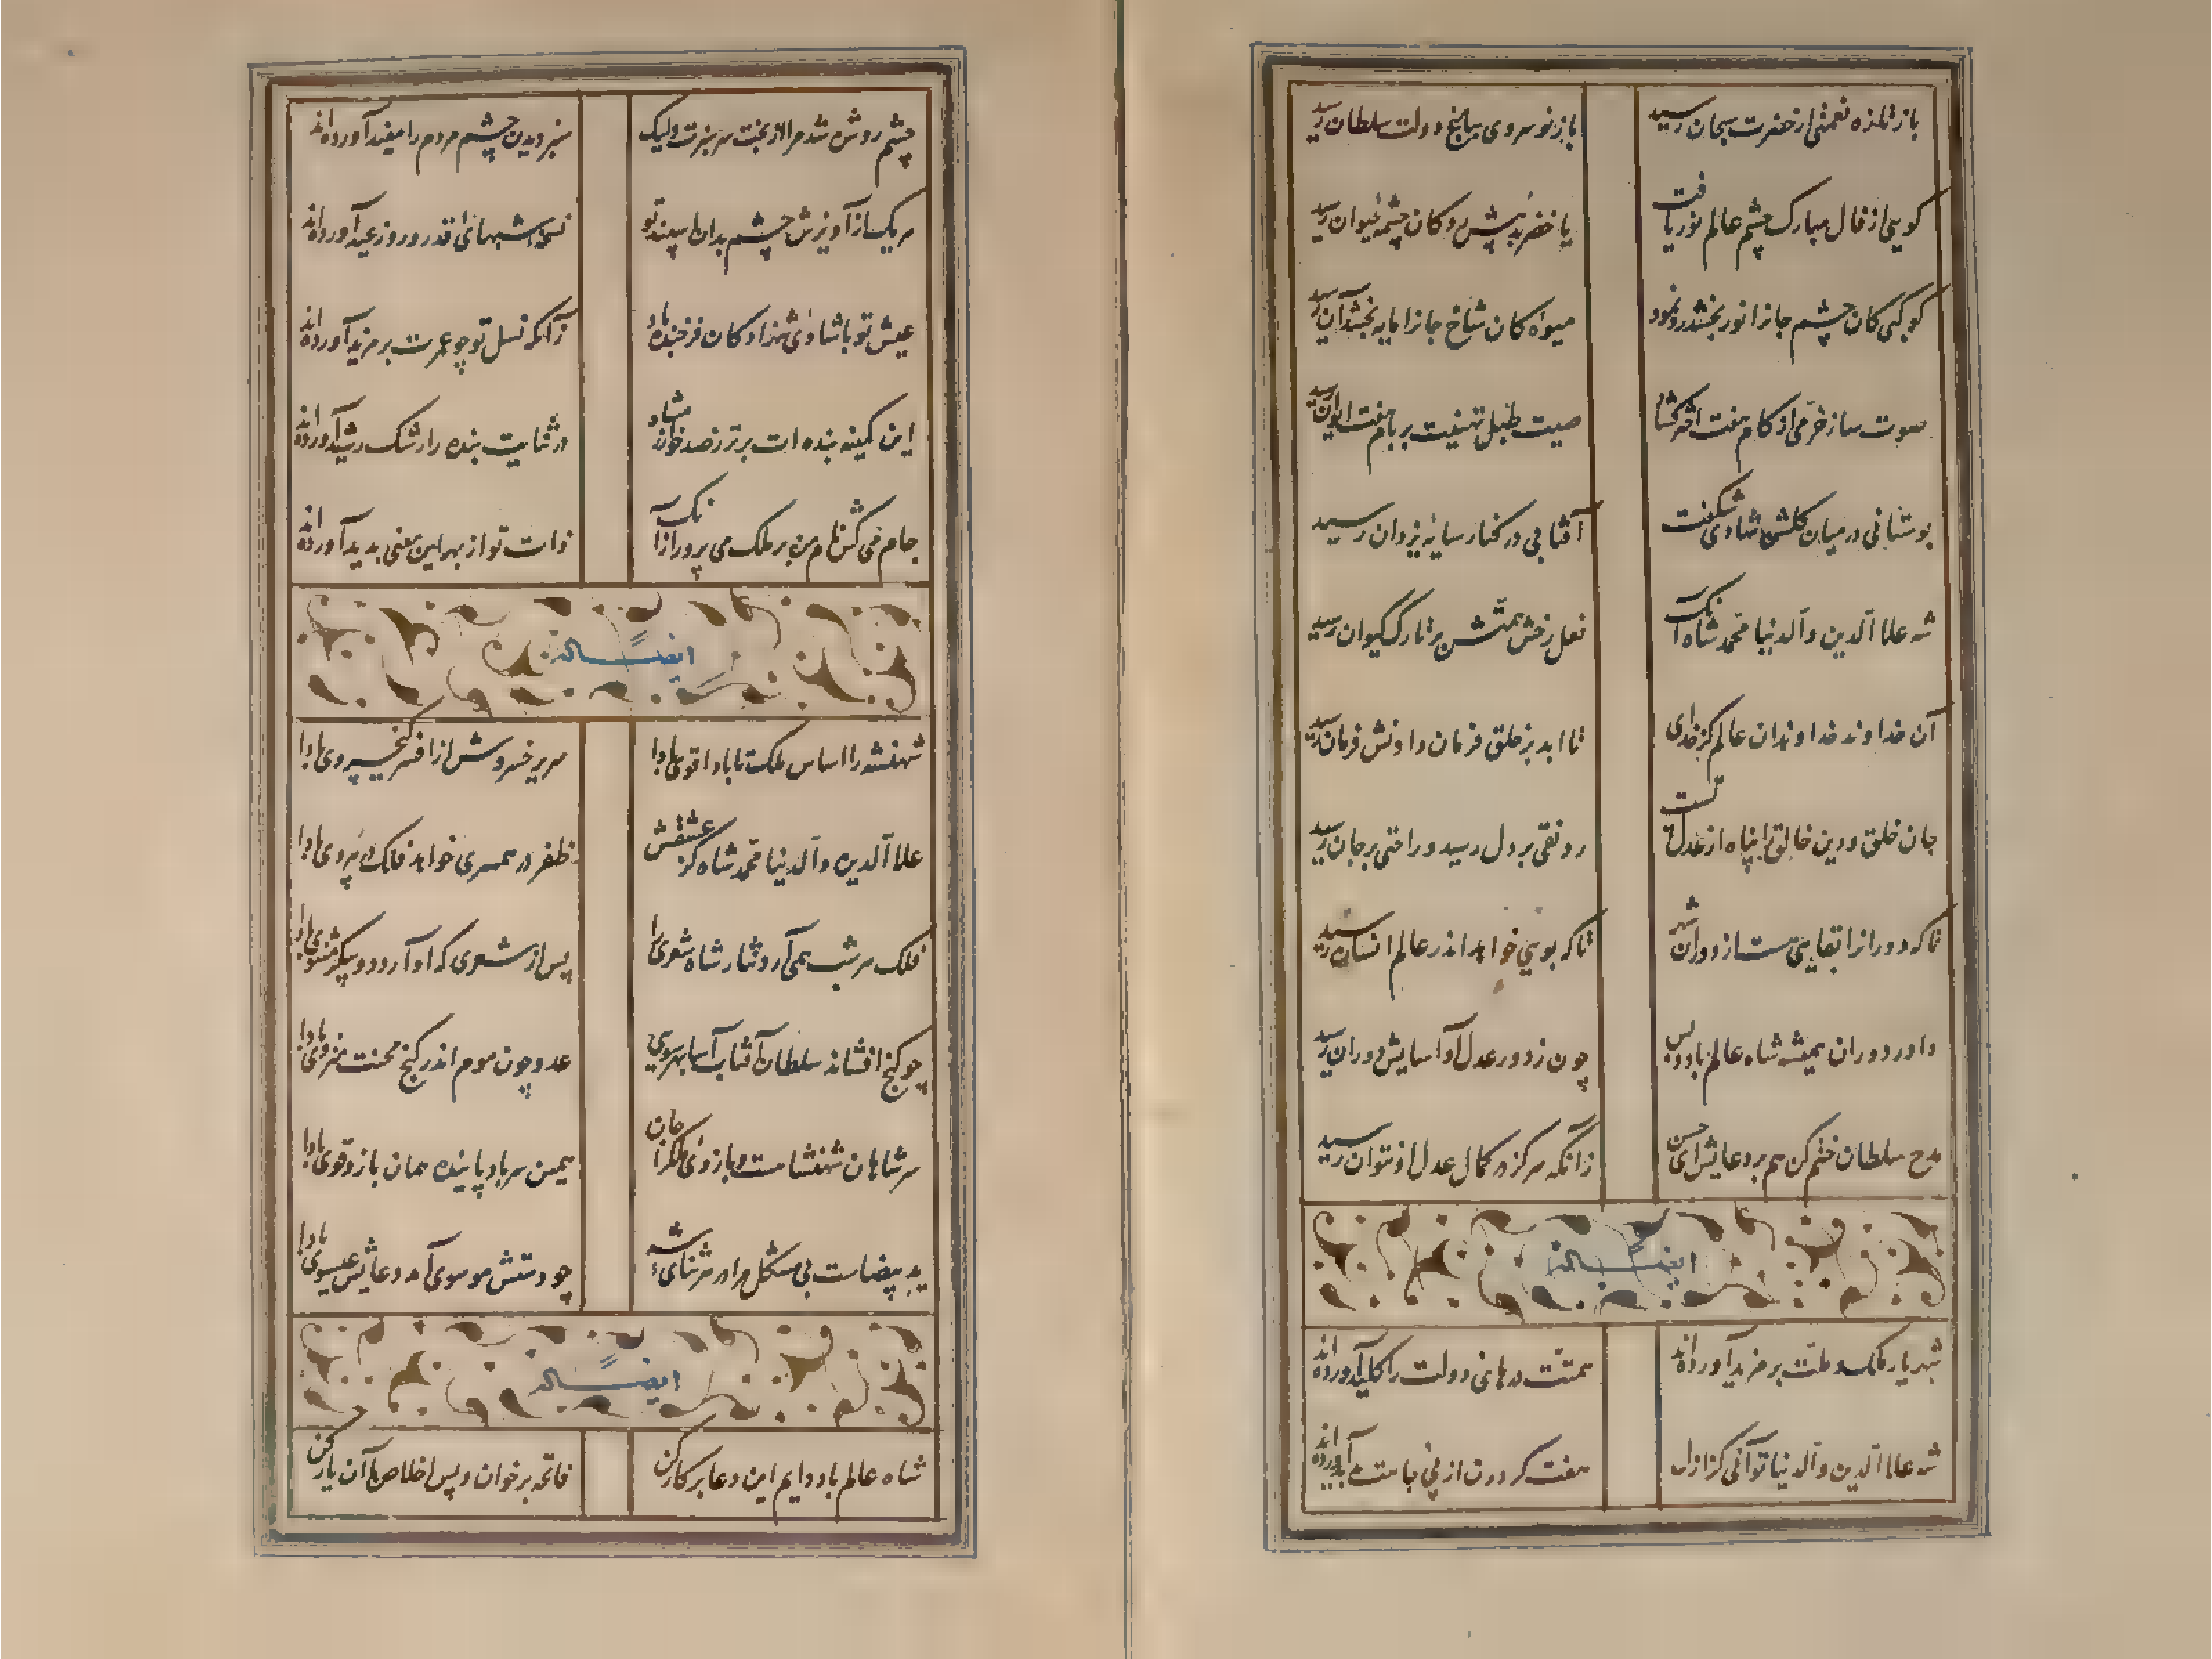 باز تازه نعمتی از حضرت سبحان رسید
باز نو سروی بباغ دولت سلطان رسید
کویی از فال مبارک چشم عالم نور یافت
یا خضر بد پیش و کان چشمه حیوان رسید
کوکبی کان چشم جانرا نور بخشد رو نمود
میوه کان شاخ جانرا مایه بخشد آن رسید
صوت ساز خرمی از کام هفت اختر کشاد
صیت طبل تهنیت بر بام هفت ایوان رسید
بوستانی در میان کلشن شادی شکفت
آفتابی در کنار سایه یزدان رسید
شه علاء الدین و الدنیا محمد شاه آنک
نعل رخش همتش بر تارک کیوان رسید
آن خداوند خداوندان عالم کز خدای
تا ابد بر خلق فرمان دادنش فرمان رسید
جان خلق و دین خالق را پناه از عدل تست
رونقی بر دل رسید و راحتی بر جان رسید
تا که دورانرا بقایی هست از دوران شهر
تا که بویی خواهد اندر عالم انسان رسید
داور دوران همیشه شاه عالم باد و بس
چون ز دور عدل او آسایش دوران رسید
مدح سلطان ختم کن هم بر دعایش ای حسن
زآنکه هرکز در کمال عدل او نتوان رسید
ایضاً له
شهریار ملک و ملت بر مزید آورده‌اند
همتت درهای دولت را کلید آورده اند
شه علاء الدین و الدنیا تو آنی کز ازل
هفت کردون از پی جاهت پدید آورده اند
چشم روشن شد مرا از بخت سرسبزت ولیک
سبز دیدن چشم مردم را مفید آورده اند
هر یک از آویزش چشم بدان سپند تو
نسخه شبهای قدر و روز عید آورده اند
عیش تو با شادی شهزادکان فرخنده باد
زآنکه نسل تو چو عمرت بر مزید آورده اند
این کمینه بنده ات برتر ز صد خوانده شاد
در ثنایت بنده را رشک رشید آورده اند
جام می کش نام من بر ملک می پرور ازآنک
ذات تو از بهر این معنی پدید آورده اند
ایضاً له
شهنشه را اساس ملکت تا باد اقوی بادا
سریر خسروش از افسر کیخسروی بادا
علاء الدین و الدنیا محمد شاه کز عشقش
ظفر در همسری خواهد فلک در پیروی بادا
فلک هر شب همی آرد نثار شاه شعری را
پس از شعری که او آرد دو پیکر مثنوی بادا
چو کنج افشاند سلطان آفتاب آسا بهر سویی
عدو چون موم اندر کنج محنت منزوی بادا
سر شاهان شهنشاهست و بازوی ملکرا جان
همین سر باد پاینده همان بازو قوی بادا
ید بیضاست بی مشکل مرا در هر ثنای شه
چو دستش موسوی آمد دعایش عیسوی بادا
ایضاً له
شاه عالم باد دایم این دعا بر کار کن
فاتحه برخوان و پس اخلاص با آن یار کن